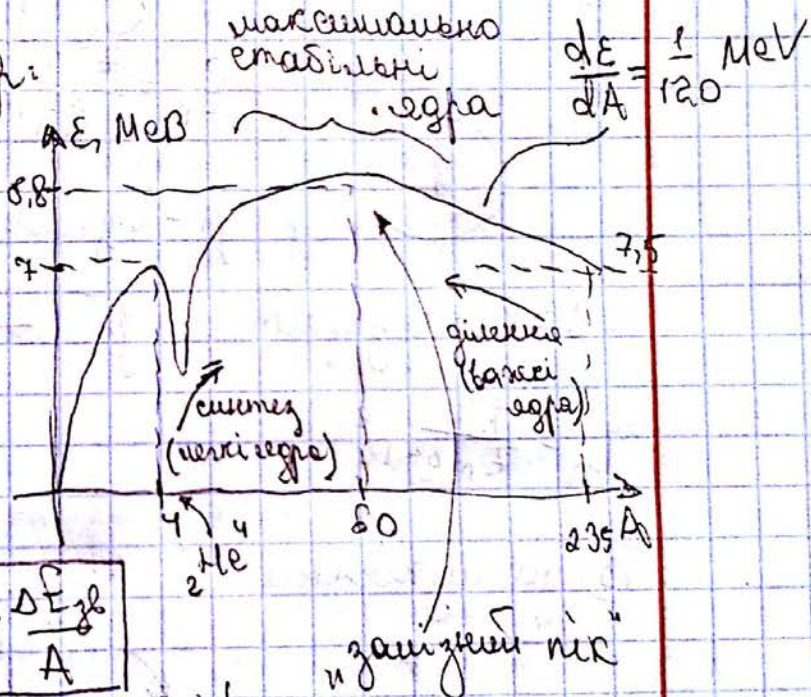 максимально
стабільні
ядра
dε/dA = 1/120 MeV
ε, МеВ
8,8
7
7,5
ділення
(важкі
ядра)
синтез
(легкі ядра)
4
60
235 A
₂He⁴
ΔEзв/A
"залізний пік"